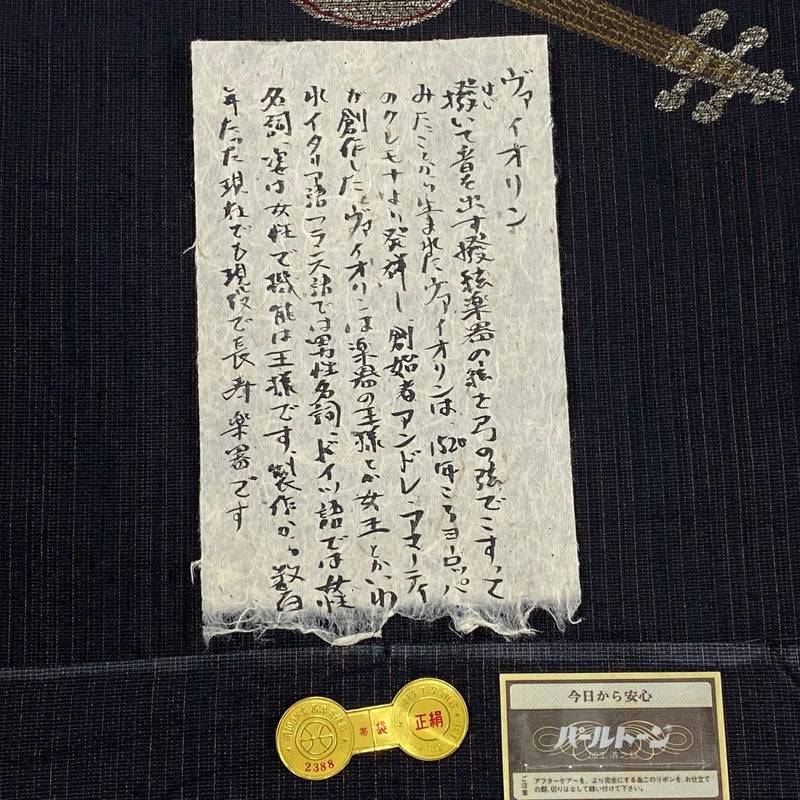 ヴァイオリン
撥いて音を出す撥絃楽器の絃を弓の弦でこすって
はじ
みたことから生まれたヴァイオリンは、1520年ころヨーロッパ
のクレモナより発祥し、創始者アンドレ・アマーティ
が創作した、ヴァイオリンは楽器の王様とか女王とかいわ
れイタリア語フランス語では男性名詞、ドイツ語では女性
名詞、姿は女性で機能は王様です、製作から数百
年たった現在でも現役で長寿楽器です
帯 袋
正絹
2388
今日から安心
パールトーン
ご注意
アフターケアーを、より完全にする為このリボンを、お仕立て
の際、切りはなして縫い付けて下さい。